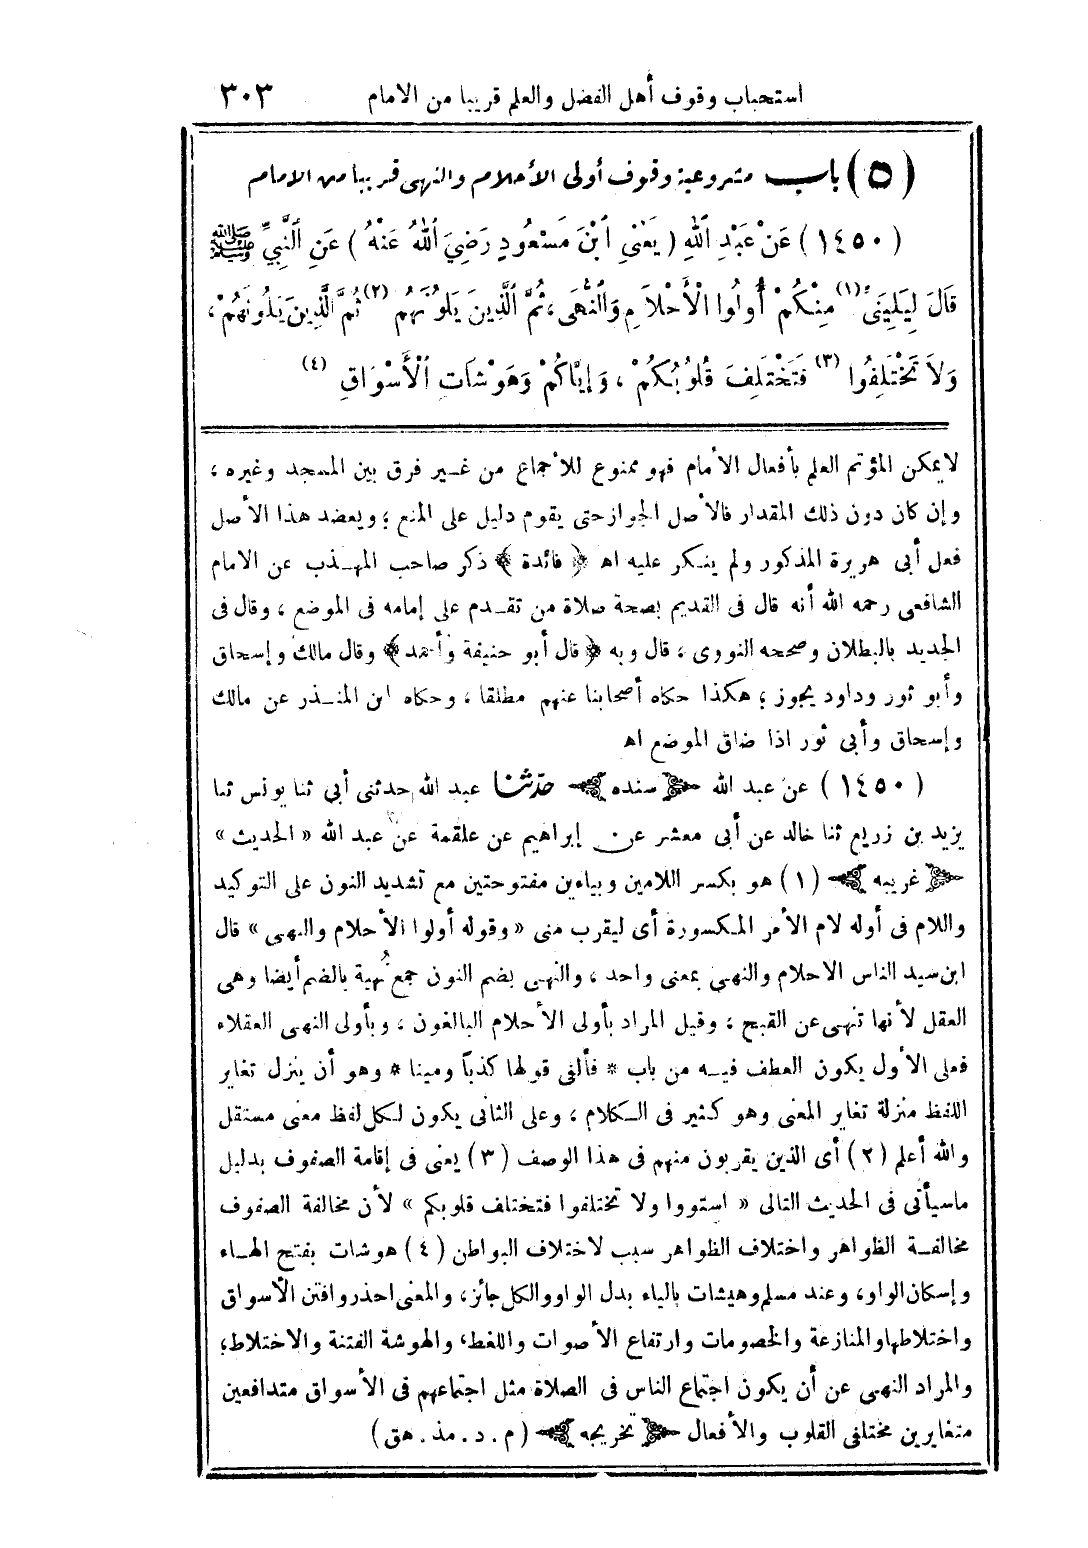 استحباب وقوف أهل الفضل والعلم قريبا من الامام ٣٠٣
(٥) باب مشروعية وقوف أولى الأحلام والنهى قريبا من الامام
(١٤٥٠) عَنْ عَبْدِ اللهِ (يَعْنِى ابْنَ مَسْعُودٍ رَضِيَ اللهُ عَنْهُ) عَنِ النَّبِيِّ ﷺ
قَالَ لِيَلِيَنِّى (١) مِنْكُمْ أُولُوا الْأَحْلَامِ وَالنُّهَى، ثُمَّ الَّذِينَ يَلُونَهُمْ (٢) ثُمَّ الَّذِينَ يَلُونَهُمْ،
وَلاَ تَخْتَلِفُوا (٣) فَتَخْتَلِفَ قُلُوبُكُمْ، وَإِيَّاكُمْ وَهَوْشَاتِ الْأَسْوَاقِ (٤)
لايمكن المؤتم العلم بأفعال الأمام فهو ممنوع للأجماع من غير فرق بين المسجد وغيره،
وإن كان دون ذلك المقدار فالأصل الجواز حتى يقوم دليل على المنع؛ ويعضد هذا الأصل
فعل أبى هريرة المذكور ولم ينكر عليه اهـ ﴿فائدة﴾ ذكر صاحب المهذب عن الامام
الشافعى رحمه الله أنه قال فى القديم بصحة صلاة من تقدم على إمامه فى الموضع، وقال فى
الجديد بالبطلان وصححه النووى، قال وبه ﴿قال أبو حنيفة وأحمد﴾ وقال مالك وإسحاق
وأبو ثور وداود يجوز؛ هكذا حكاه أصحابنا عنهم مطلقا، وحكاه ابن المنذر عن مالك
وإسحاق وأبى ثور اذا ضاق الموضع اهـ
(١٤٥٠) عن عبد الله ﴿سنده﴾ حدّثنا عبد الله حدثنى أبي ثنا يونس ثنا
يزيد بن زريع ثنا خالد عن أبى معشر عن إبراهيم عن علقمة عن عبد الله «الحديث»
﴿غريبه﴾ (١) هو بكسر اللامين وبياءين مفتوحتين مع تشديد النون على التوكيد
واللام فى أوله لام الأمر المكسورة أى ليقرب منى «وقوله أولوا الأحلام والنهى» قال
ابن سيد الناس الاحلام والنهى بمعنى واحد، والنهى بضم النون جمع نُهية بالضم أيضا وهى
العقل لأنها تنهى عن القبح، وقيل المراد بأولى الأحلام البالغون، وبأولى النهى العقلاء
فعلى الأول يكون العطف فيه من باب * فألفى قولها كذباً ومينا * وهو أن ينزل تغاير
اللفظ منزلة تغاير المعنى وهو كثير فى الكلام، وعلى الثانى يكون لكل لفظ معنى مستقل
والله أعلم (٢) أى الذين يقربون منهم فى هذا الوصف (٣) يعنى فى إقامة الصفوف بدليل
ماسيأتى فى الحديث التالى «استووا ولا تختلفوا فتختلف قلوبكم» لأن مخالفة الصفوف
مخالفة الظواهر واختلاف الظواهر سبب لاختلاف البواطن (٤) هوشات بفتح الهاء
وإسكان الواو، وعند مسلم وهيشات بالياء بدل الواو والكل جائز، والمعنى احذروا فتن الأسواق
واختلاطها والمنازعة والخصومات وارتفاع الأصوات واللغط، والهوشة الفتنة والاختلاط؛
والمراد النهى عن أن يكون اجتماع الناس فى الصلاة مثل اجتماعهم فى الأسواق متدافعين
متغايرين مختلفى القلوب والأفعال ﴿تخريجه﴾ (م. د. مذ. هق)